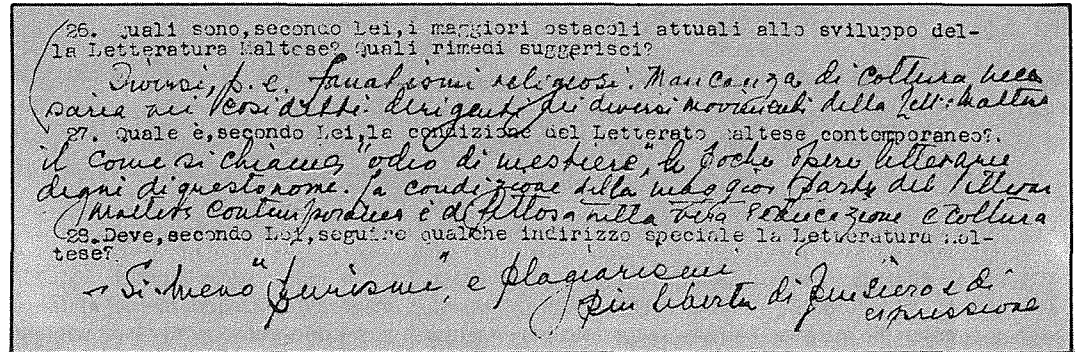 26. Quali sono,secondo Lei,i maggiori ostacoli attuali allo sviluppo del-
la Letteratura Maltese? Quali rimedi suggerisci?
Diversi, p.e. fanatismi religiosi. Mancanza di coltura neces
saria nei cosidetti dirigenti dei diversi movimenti della Lett: Maltese
27. Quale è,secondo Lei,la condizione del Letterato maltese contemporaneo?.
il come si chiama "odio di mestiere", le poche opere letterarie
degni di questo nome. La condizione della maggior parte dei
contemporanea è difettosa nella vera educazione e coltura
28.Deve,secondo Lei,seguire qualche indirizzo speciale la Letteratura mal-
tese?
Si. meno "purismi", e plagiarismi
piu liberta di pensiero e di
espressione